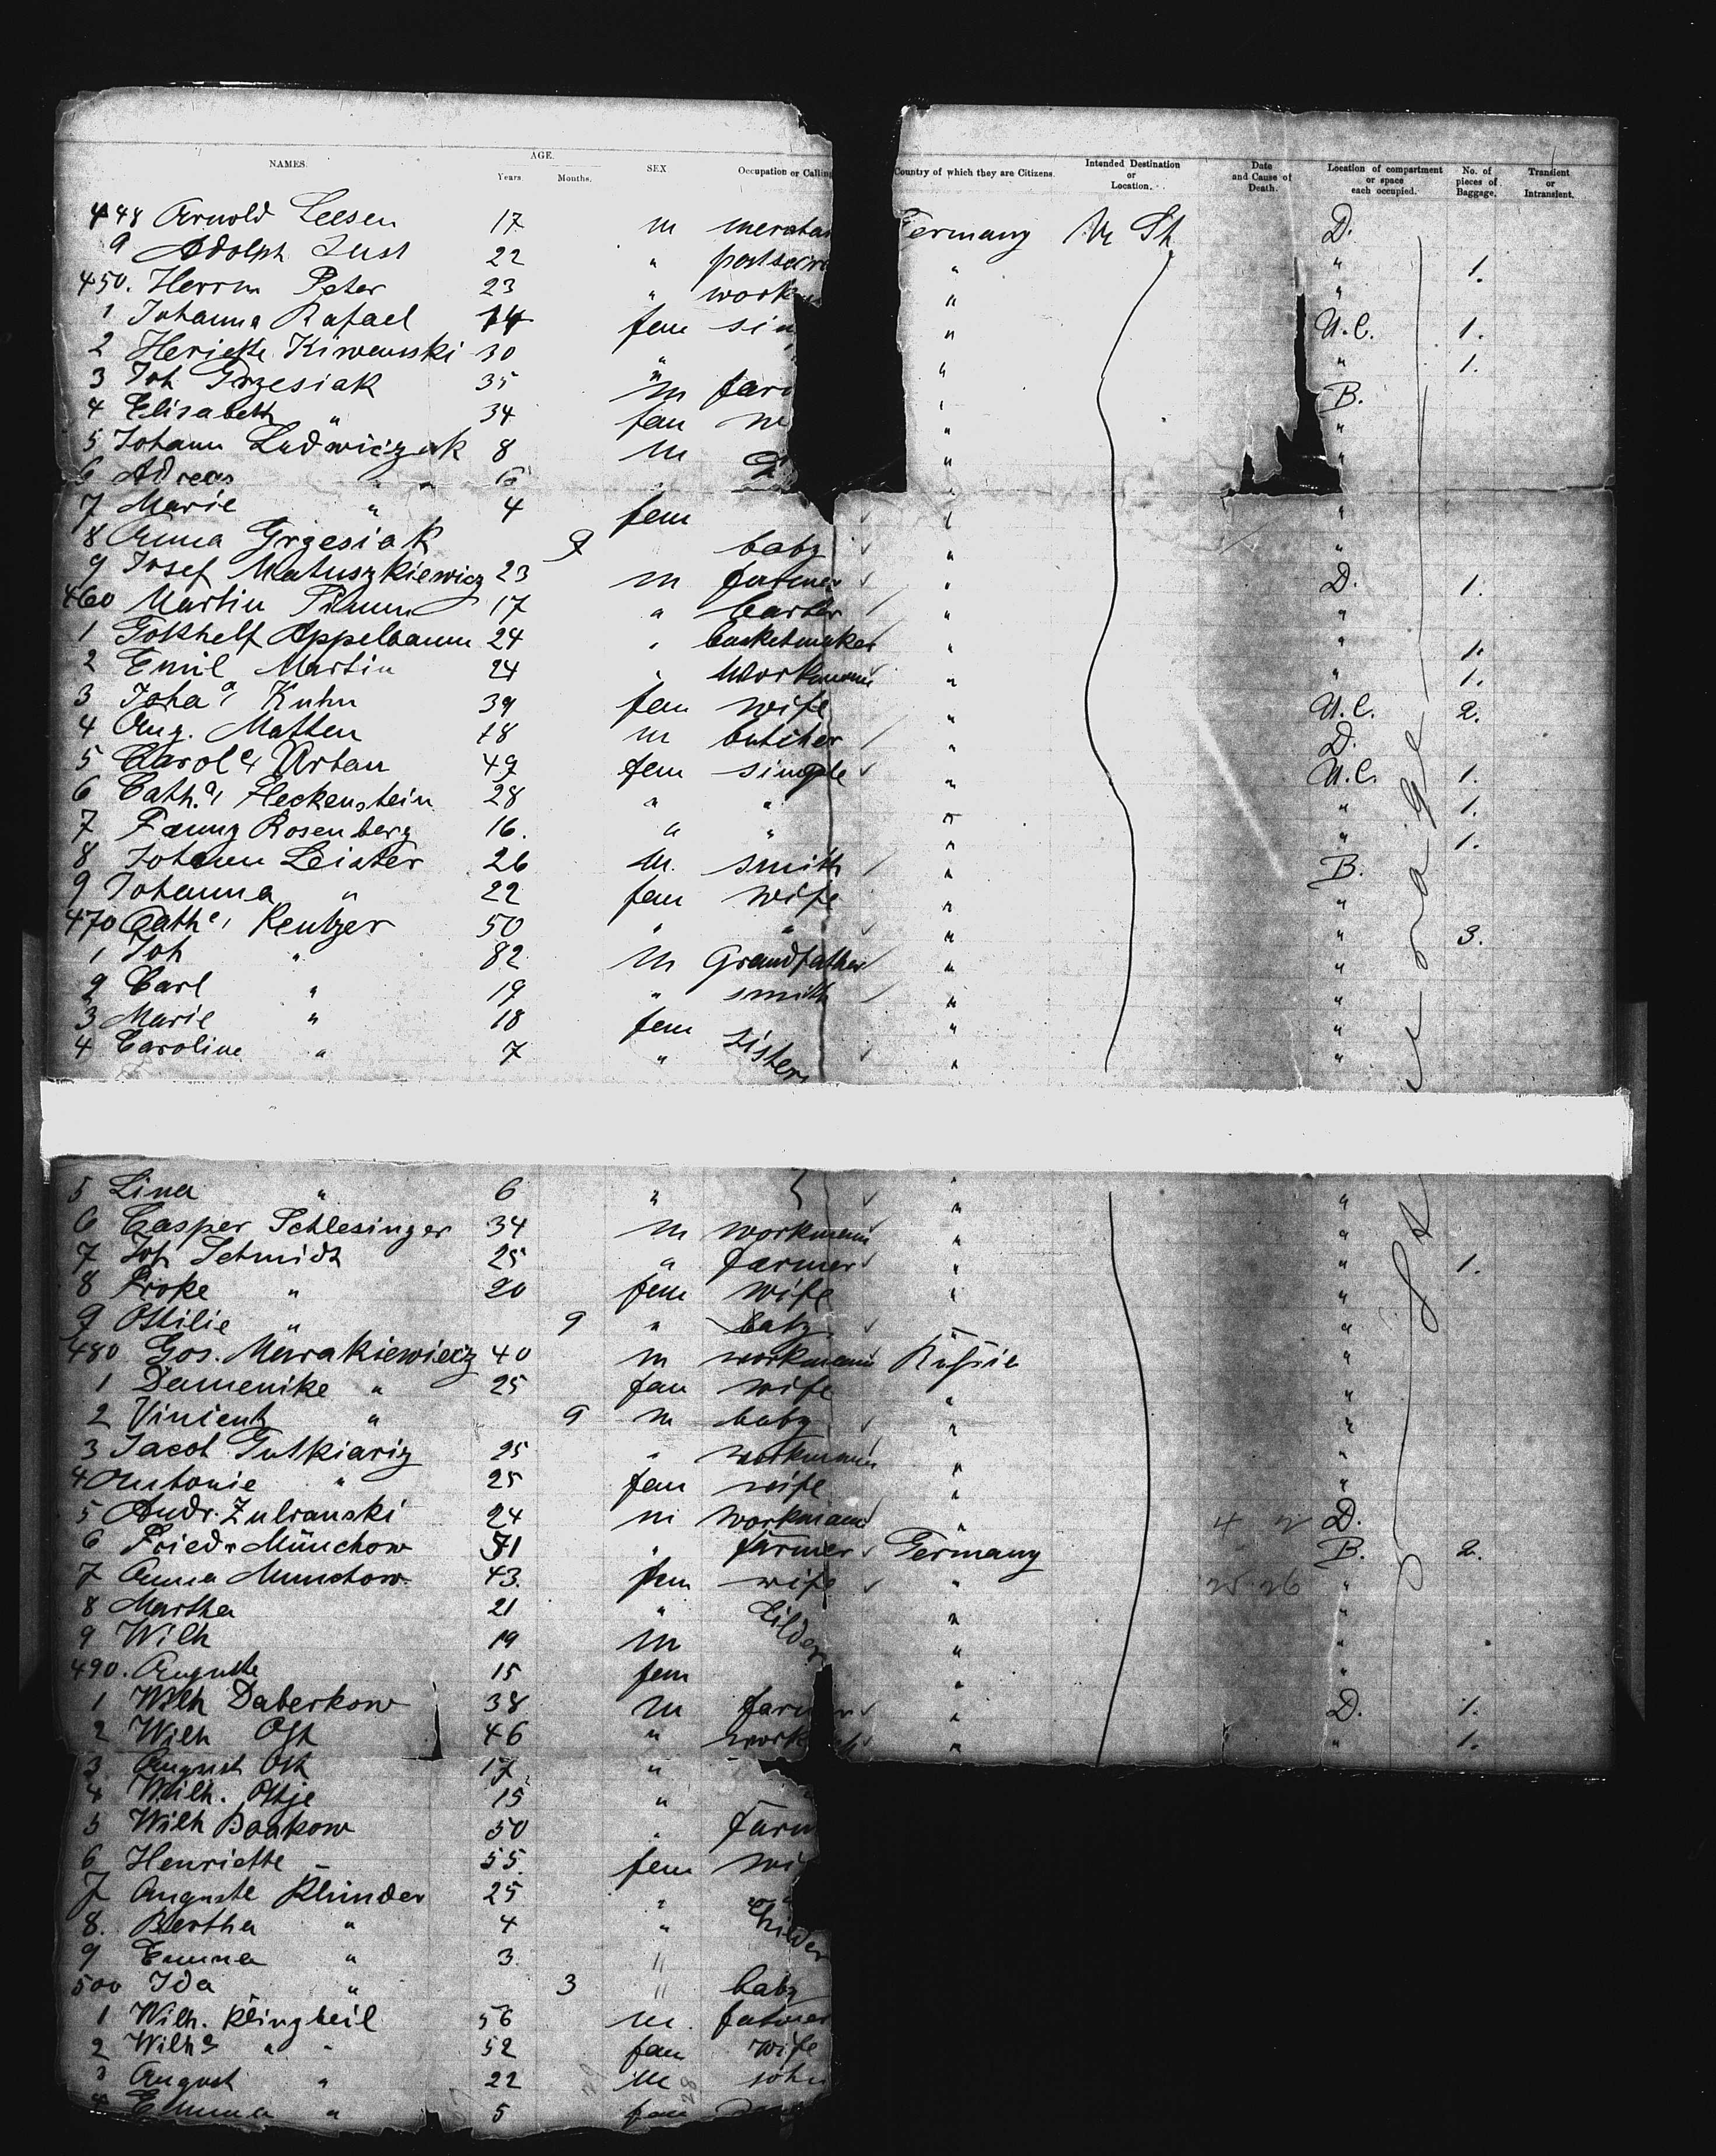 NAMES. AGE. Years. Months. SEX Occupation or Calling Country of which they are Citizens. Intended Destination or Location. Date and Cause of Death. Location of compartment or space each occupied. No. of pieces of Baggage. Transient or Intransient.
448 Arnold Leesen 17 m Germany D.
9 Adolph Just 22 " " " 1.
450. Herrm Peter 23 " work " "
1 Johanna Rafael 14 fem sin " U.C. 1.
2 30 " " " 1.
3 Joh Grzesiak 35 m far " B.
4 Elisabeth " 34 fem " "
5 Johann Ludwiczak 8 m " "
6 Adreas " " 6
7 Marie " 4 fem " "
8 Anna Grzesiak 9 " baby " "
9 Josef Matuszkiewicz 23 m farmer " D. 1.
460 Martin 17 " " "
1 Appelbaum 24 " basketmaker " " 1.
2 Emil Martin 24 " workmann " " 1.
3 Joha a/ Kuhn 39 fem wife " U.C. 2.
4 Aug. Matten 18 m butcher " D.
5 Carol e/ Urban 49 fem single " U.C. 1.
6 Cath. a/ Fleckenstein 28 " " " " 1.
7 Fanny Rosenberg 16. " " " " 1.
8 Johann Leister 26 m. smith " B.
9 Johanna " 22 fem wife " "
470 Cath e/ Rentzer 50 " " " " 3.
1 Joh " 82 m Grandfather " "
2 Carl " 19 " smith " "
3 Marie " 18 fem " "
4 Caroline " 7 " sisters " "
5 Lina " 6 " " "
6 Casper Schlesinger 34 m workmann " "
7 Joh Schmidt 25 " farmer " " 1.
8 " 20 fem wife " "
9 Ottilie " 9 " baby " "
480 Gos. Murakiewiecz 40 m workmann "
1 Damenike " 25 fem wife " "
2 Vincent " 9 m baby " "
3 Jacob 25 " workmann " "
4 Antonie " 25 fem wife " "
5 Andr. Zulranski 24 m workmann " D.
6 Friedr Münchow 51 " farmer Germany B. 2.
7 Anna Munchow 43. fem wife " "
8 Martha 21 " " "
9 Wilh 19 m " "
490. Auguste 15 fem " "
1 Wilh Daberkow 38 m farmer " D. 1.
2 Wilh Ost 46 " work " " 1.
3 August Ost 17 "
4 Wilh. Ostje 15 "
5 Wilh Baakow 50 " farm
6 Henriette " 55. fem wi
7 Auguste Klünder 25 "
8. Bertha " 4 " childer
9 Emma " 3. "
500 Ida " 3 " baby
1 Wilh. Klingbeil 56 m. farmer
2 Wilh e " " 52 fem wife
3 August " 22 m sohn
4 Emma " 5 fem